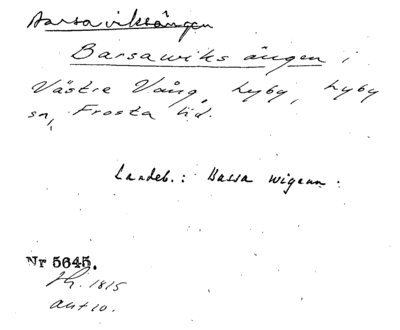 Barsaviksängen
Barsawiks ängen i
Västre Vång, Lyby, Lyby
sn, Frosta hd.
Landeb.: Bassa wigenn.
Nr 5645.
1815
akt 10.